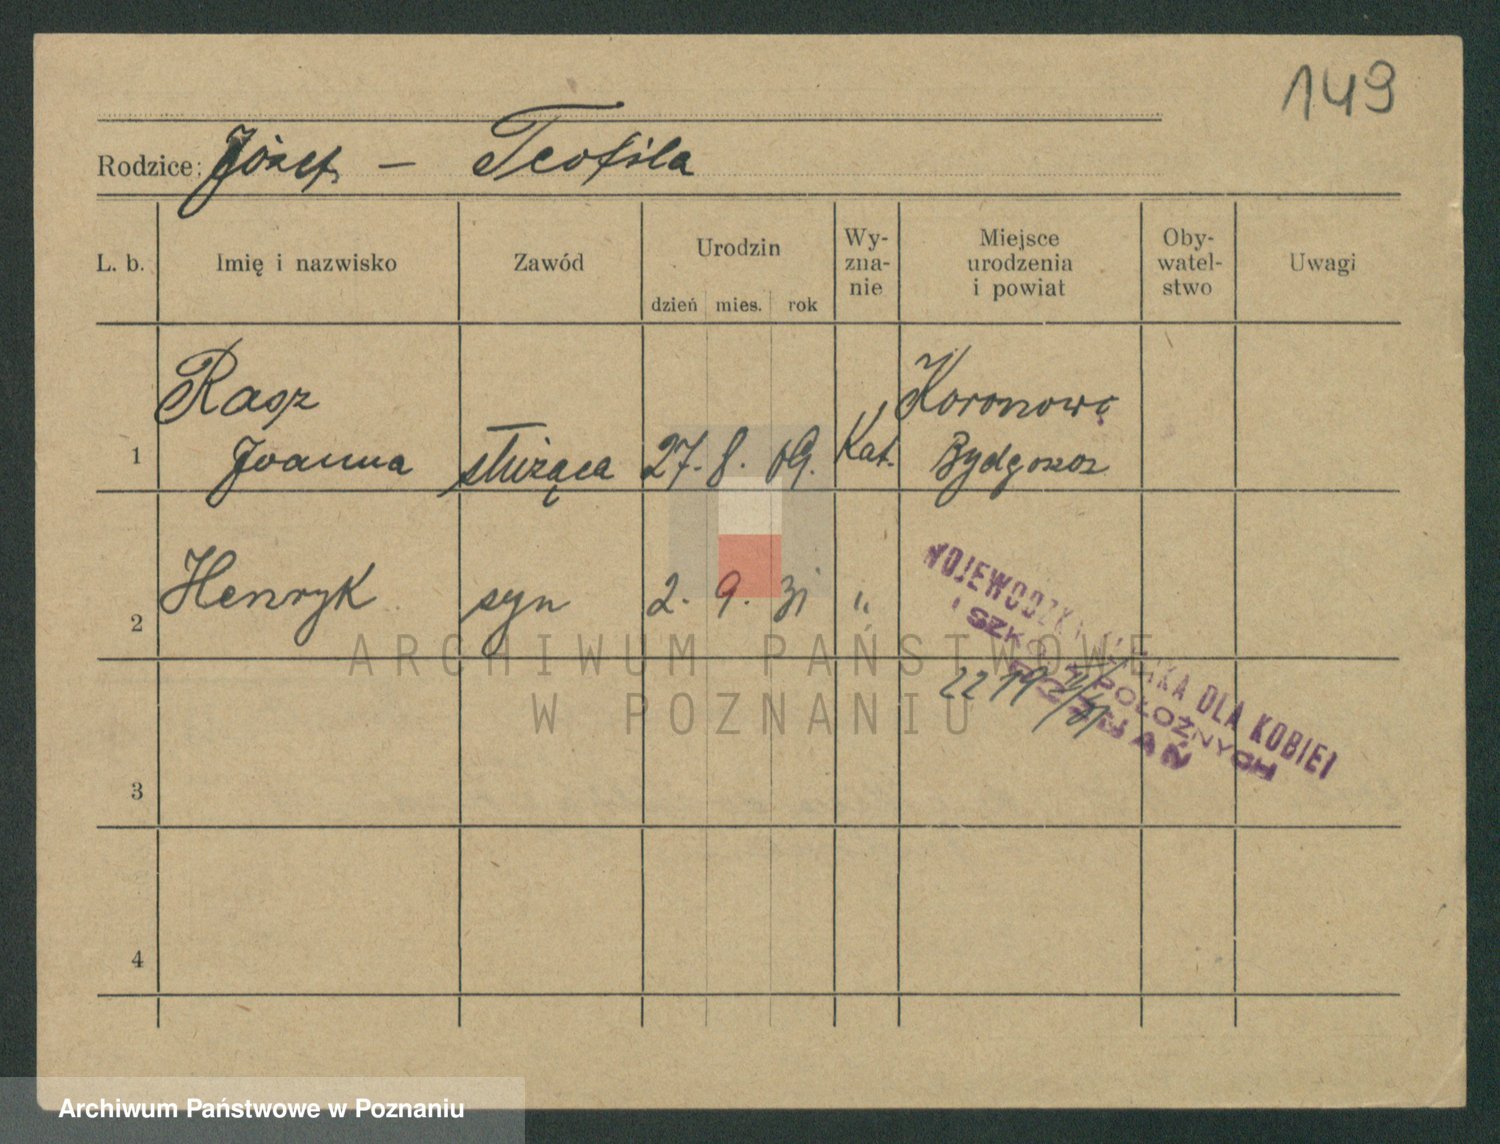 149
Rodzice: Józef, — Teofila
L. b. Imię i nazwisko Zawód Urodzin dzień mies. rok Wy-zna-nie Miejsce urodzenia i powiat Oby-watel-stwo Uwagi
Rasz Koronowo
1 Joanna służąca 27. 8. 09. Kat. Bydgoszcz
2 Henryk syn 2. 9. 31 "
WOJEWÓDZKA KLINIKA DLA KOBIET
I SZKOŁA POŁOŻNYCH
POZNAŃ
3
4
ARCHIWUM PAŃSTWOWE
W POZNANIU
Archiwum Państwowe w Poznaniu